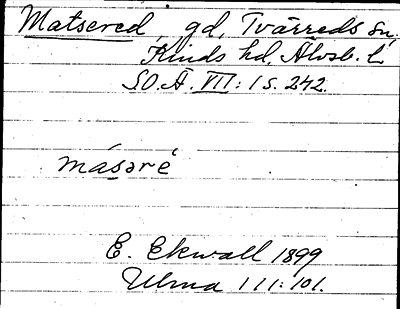 Matsered, gd, Tvärreds sn,
Kinds hd, Älvsb. l.
SOÄ VII:1 s. 242.
másəré
E. Ekwall 1899
Ulma 111:101.